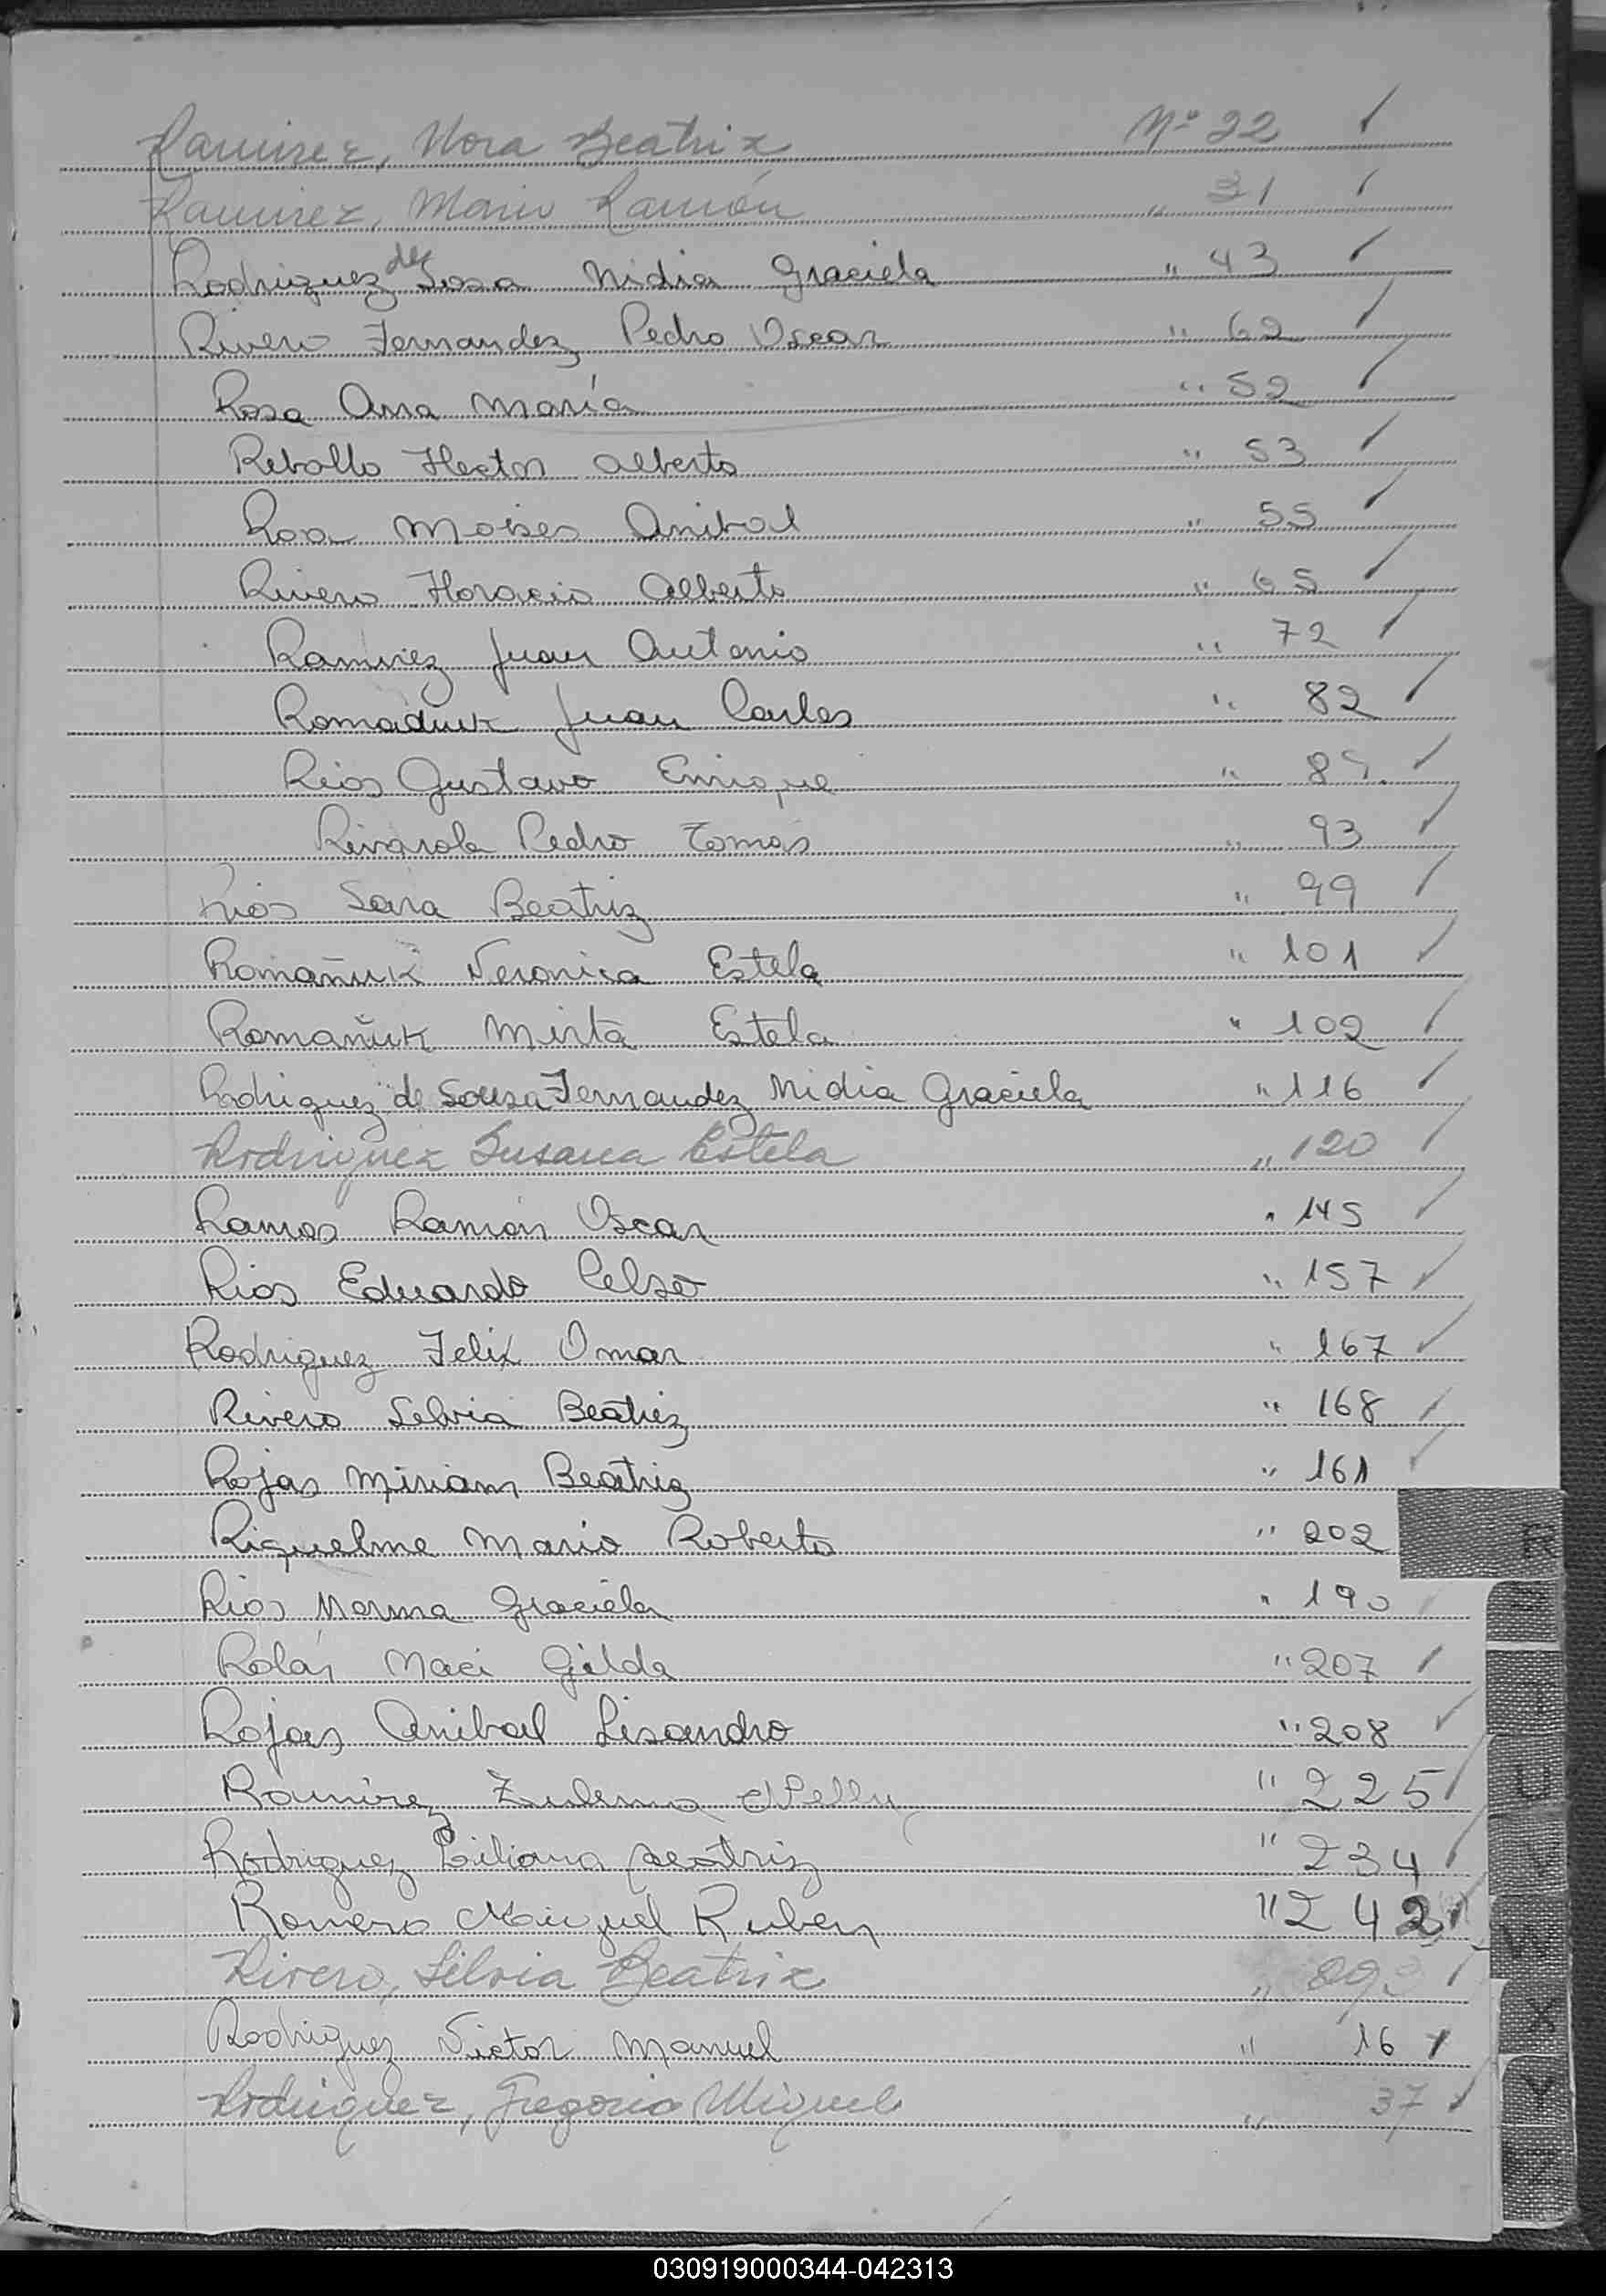 Ramirez, Nora Beatriz Nº 22 ✓
Ramirez, Mario Ramón " 31 ✓
Rodriguez de Sosa Nidia Graciela " 43 ✓
Rivero Fernandez Pedro Oscar " 62 ✓
Rosa Ana María " 52 ✓
Rebollo Hector Alberto " 53 ✓
Roa Moises Anibal " 55 ✓
Rivero Horacio Alberto " 65 ✓
Ramirez Juan Antonio " 72 ✓
Romaduk Juan Carlos " 82 ✓
Rios Gustavo Enrique " ✓
Rivarola Pedro Tomás " 93 ✓
Rios Sara Beatriz " 99 ✓
Romañuk Veronica Estela " 101 ✓
Romañuk Mirta Estela " 102 ✓
Rodriguez de Sousa Fernandez Nidia Graciela " 116 ✓
Rodriguez Susana Estela " 120 ✓
Ramos Ramón Oscar " 145 ✓
Rios Eduardo Celso " 157 ✓
Rodriguez Felix Omar " 167 ✓
Rivero Selvia Beatriz " 168 ✓
Rojas Miriam Beatriz " 161 ✓
Riquelme Mario Roberto " 202
Rios Norma Graciela " 190 ✓
Rolán Naci Gilda " 207 ✓
Rojas Anibal Lisandro " 208 ✓
Ramirez Zulema Nelly " 225 ✓
Rodriguez Liliana Beatriz " 234 ✓
Romero Miguel Ruben " 242 ✓
Rivero, Silvia Beatriz " ✓
Rodriguez Victor Manuel " 16 ✓
Rodriguez, Gregorio Miguel " 37 ✓
R
U
W
X
Y
Z
030919000344-042313